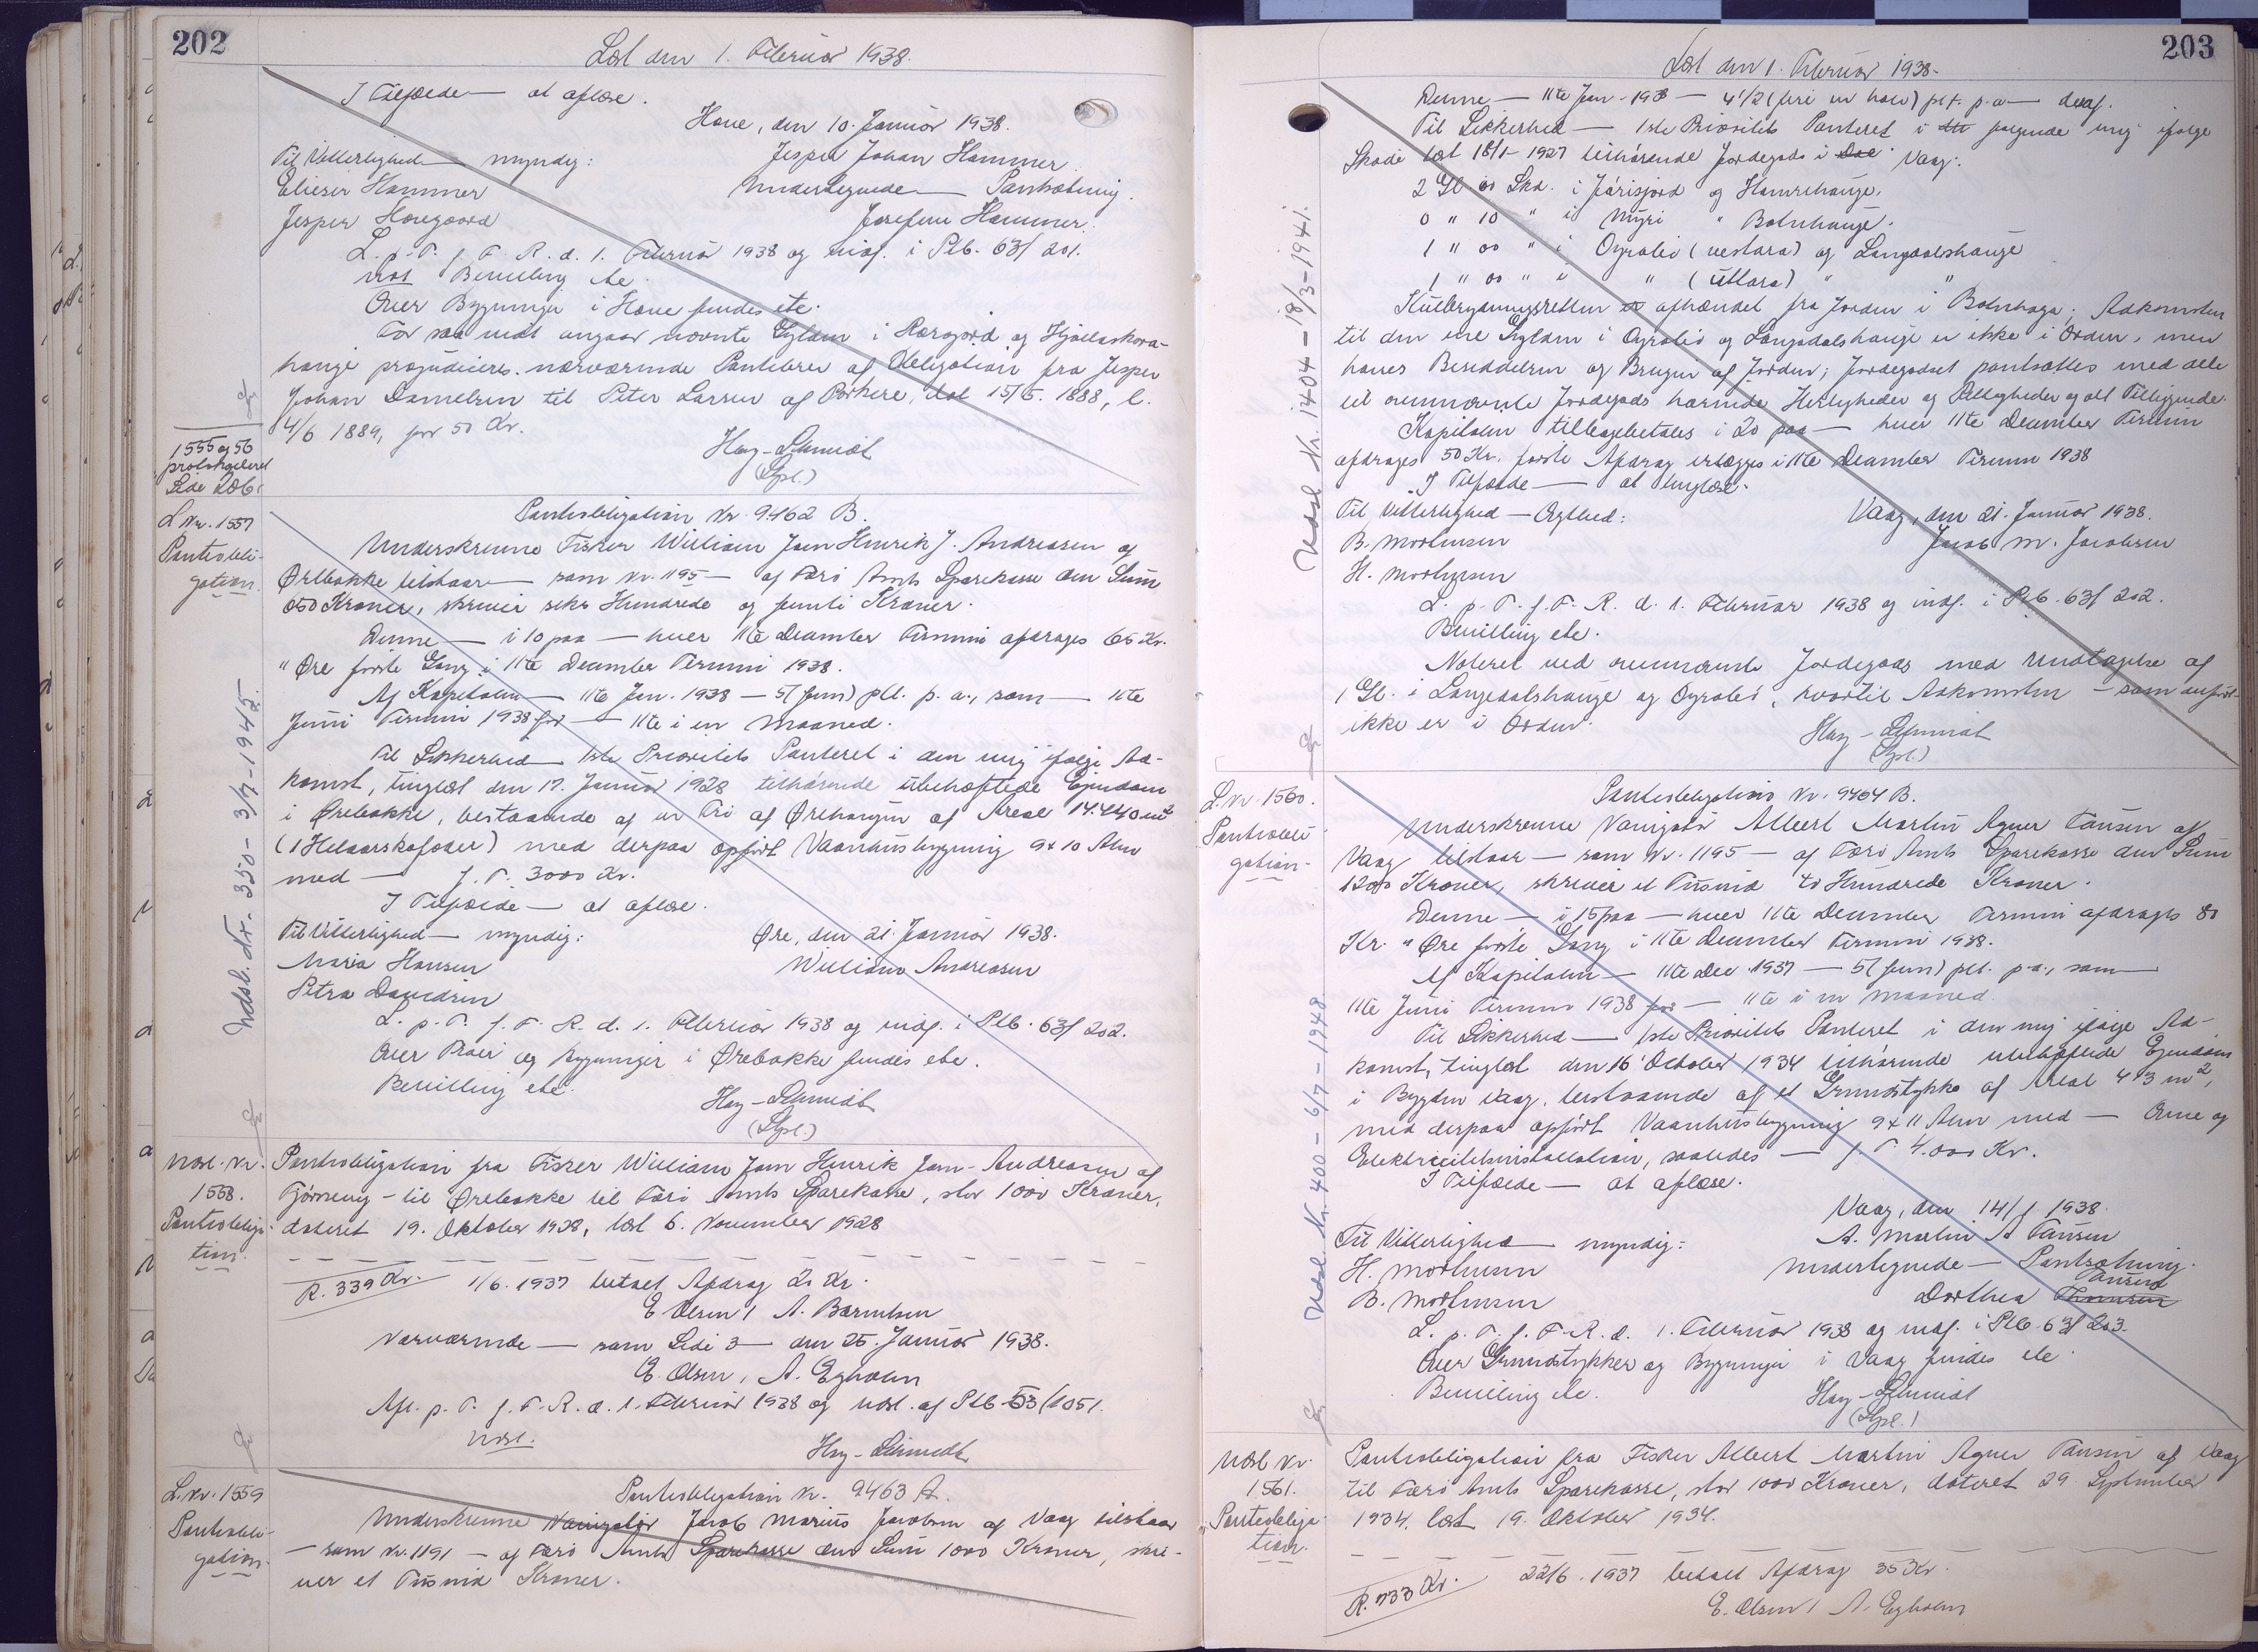 202
Læst den 1. Februar 1938.
I Tilfælde — at aflæse.
Hove, den 10. Januar 1938.
Til Vitterlighed — myndig:
Jesper Johan Hammer
Elieser Hammer
Undertegnede — Pantsætning.
Jesper Horegaard
Josefine Hammer.
L. p. T. f. F. R. d. 1. Februar 1938 og indf. i Ptb. 63/201.
Bevilling etc.
Over Bygninger i Hove findes etc.
For saa vidt angaar nævnte Gylden i Rærgjord og Hjallaskora-
hauge præjudiceres nærværende Pantebrev af Obligation fra Jesper
Johan Danielsen til Peter Larsen af Porkere, dat. 15/5. 1888, l.
4/6 1889, for 50 Kr.
Hay-Schmidt
(Spl.)
1555 og 56
protokolleret
Side 206.
L. Nr. 1557
Pantobli-
gation.
Pantobligation Nr. 9462 B.
Underskrevne Fisker William Joen Henrik J. Andreasen af
Ørebakke tilstaar — som Nr. 1195 — af Færø Amts Sparekasse den Sum
650 Kroner, skriver seks Hundrede og femti Kroner.
Denne — i 10 paa — hver 11te December Termin afdrages 65 Kr.
" Øre første Gang i 11te December Termin 1938.
Af Kapitalen — 11te Jan. 1938 — 5 (fem) pCt. p. a., som — 11te
Juni Termin 1938 for — 11te i en Maaned.
Til Sikkerhed — 1ste Prioritets Panteret i den mig ifølge Ad-
komst, tinglæst den 17. Januar 1928 tilhørende ubehæftede Ejendom
i Ørebakke, bestaaende af en Trø af Ørehaugen af Areal 14.440 m²
(1 Helaarskofoder) med derpaa opført Vaanhusbygning 9 x 10 Alen
med — f. T. 3000 Kr.
I Tilfælde — at aflæse.
Til Vitterlighed — myndig:
Øre, den 21. Januar 1938.
Maria Hansen
William Andreasen
Petra Davidsen
L. p. T. f. F. R. d. 1. Februar 1938 og indf. i Ptb. 63/202.
Over Trøer og Bygninger i Ørebakke findes etc.
Bevilling etc.
Hay-Schmidt
(Spl.)
Udsl. Nr. 350 - 3/7 - 1945.
Udsl. Nr.
1558.
Pantobliga-
tion.
Pantobligation fra Fisker William Joen Henrik Joen-Andreasen af
Tjørnevig - til Ørebakke til Færø Amts Sparekasse, stor 1000 Kroner,
dateret 19. Oktober 1928, læst 6. November 1928
R. 339 Kr.
1/6. 1937 betalt Afdrag 20 Kr.
E. Olsen / A. Berntsen
Nærværende — som Side 3 — den 25. Januar 1938.
E. Olsen, A. Egholm
Afl. p. T. f. F. R. d. 1. Februar 1938 og udsl. af Ptb. 53/1051.
Udsl.
Hay-Schmidt
L. Nr. 1559
Pantobli-
gation.
Pantobligation Nr. 9463 A.
Underskrevne Navigatør Jacob Marius Jacobsen af Vaag tilstaar
— som Nr. 1191 — af Færø Amts Sparekasse den Sum 1000 Kroner, skri-
ver et Tusind Kroner.
203
Læst den 1. Februar 1938.
Denne — 11te Jan. 1938 — 4 1/2 (fire en halv) pCt. p. a — deraf.
Til Sikkerhed — 1ste Prioritets Panteret i følgende mig ifølge
Skøde læst 18/1 - 1927 tilhørende Jordegods i Vaag:
2 Gl. 00 Skd. i Járisjord og Hamrehauge.
0 " 10 " i Mýri " Botnhauge.
1 " 00 " i Ogralid (vestara) og Langdalshauge
1 " 00 " i " (úttara) " "
Kulbrydningsretten er afhændet fra Jorden i Botnhaga; Adkomsten
til den ene Gylden i Ogralid og Langadalshauge er ikke i Orden, men
haves Besiddelsen og Brugen af Jorden; Jordegodset pantsættes med dele
til ovennævnte Jordegods hørende Herligheder og Rettigheder og alt Tilliggende.
Kapitalen tilbagebetales i 20 paa — hver 11te December Termin
afdrages 50 Kr. første Afdrag erlægges i 11te December Termin 1938
I Tilfælde — at tinglæse.
Til Vitterlighed — Ægthed:
Vaag, den 21. Januar 1938.
B. Mortensen
Jacob M. Jacobsen
H. Mortensen
L. p. T. f. F. R. d. 1. Februar 1938 og indf. i Ptb. 63/202.
Bevilling etc.
Noteret ved ovennævnte Jordegods med Undtagelse af
1 Gl. i Langedalshauge og Ogralid, hvortil Adkomsten — som anført —
ikke er i Orden.
Hay-Schmidt
(Spl.)
Udsl. Nr. 1404 - 18/3 - 1941.
L. Nr. 1560.
Pantobli-
gation.
Pantobligation Nr. 9464 B.
Underskrevne Navigatør Albert Martin Agner Tausen af
Vaag tilstaar — som Nr. 1195 — af Færø Amts Sparekasse den Sum
1200 Kroner, skriver et Tusind to Hundrede Kroner.
Denne — i 15 paa — hver 11te December Termin afdrages 80
Kr. " Øre første Gang i 11te December Termin 1938.
Af Kapitalen — 11te Dec. 1937 — 5 (fem) pCt. p. a., som —
11te Juni Termin 1938 for — 11te i en Maaned.
Til Sikkerhed — 1ste Prioritets Panteret i den mig ifølge Ad-
komst, tinglæst den 16. October 1934 tilhørende ubehæftede Ejendom
i Bygden Vaag, bestaaende af et Grundstykke af Areal 473 m²,
med derpaa opført Vaanhusbygning 9 x 11 Alen med — Ovne og
Elektricitetsinstallation, saaledes — f. T. 4.000 Kr.
I Tilfælde — at aflæse.
Vaag, den 14/1 1938.
Til Vitterlighed — myndig:
A. Martin A Tausen
H. Mortensen
Undertegnede — Pantsætning.
B. Mortensen
Dorthea Tausen
L. p. T. f. F. R. d. 1. Februar 1938 og indf. i Ptb. 63/203.
Over Grundstykker og Bygninger i Vaag findes etc.
Bevilling etc.
Hay-Schmidt
(Spl.)
Udsl. Nr. 400 - 6/7 - 1948
Udsl. Nr.
1561.
Pantobliga-
tion.
Pantobligation fra Fisker Albert Martin Agner Tausen af Vaag
til Færø Amts Sparekasse, stor 1000 Kroner, dateret 29. September
1934, læst 19. Oktober 1934.
R. 733 Kr.
22/6. 1937 betalt Afdrag 35 Kr.
E. Olsen / A. Egholm